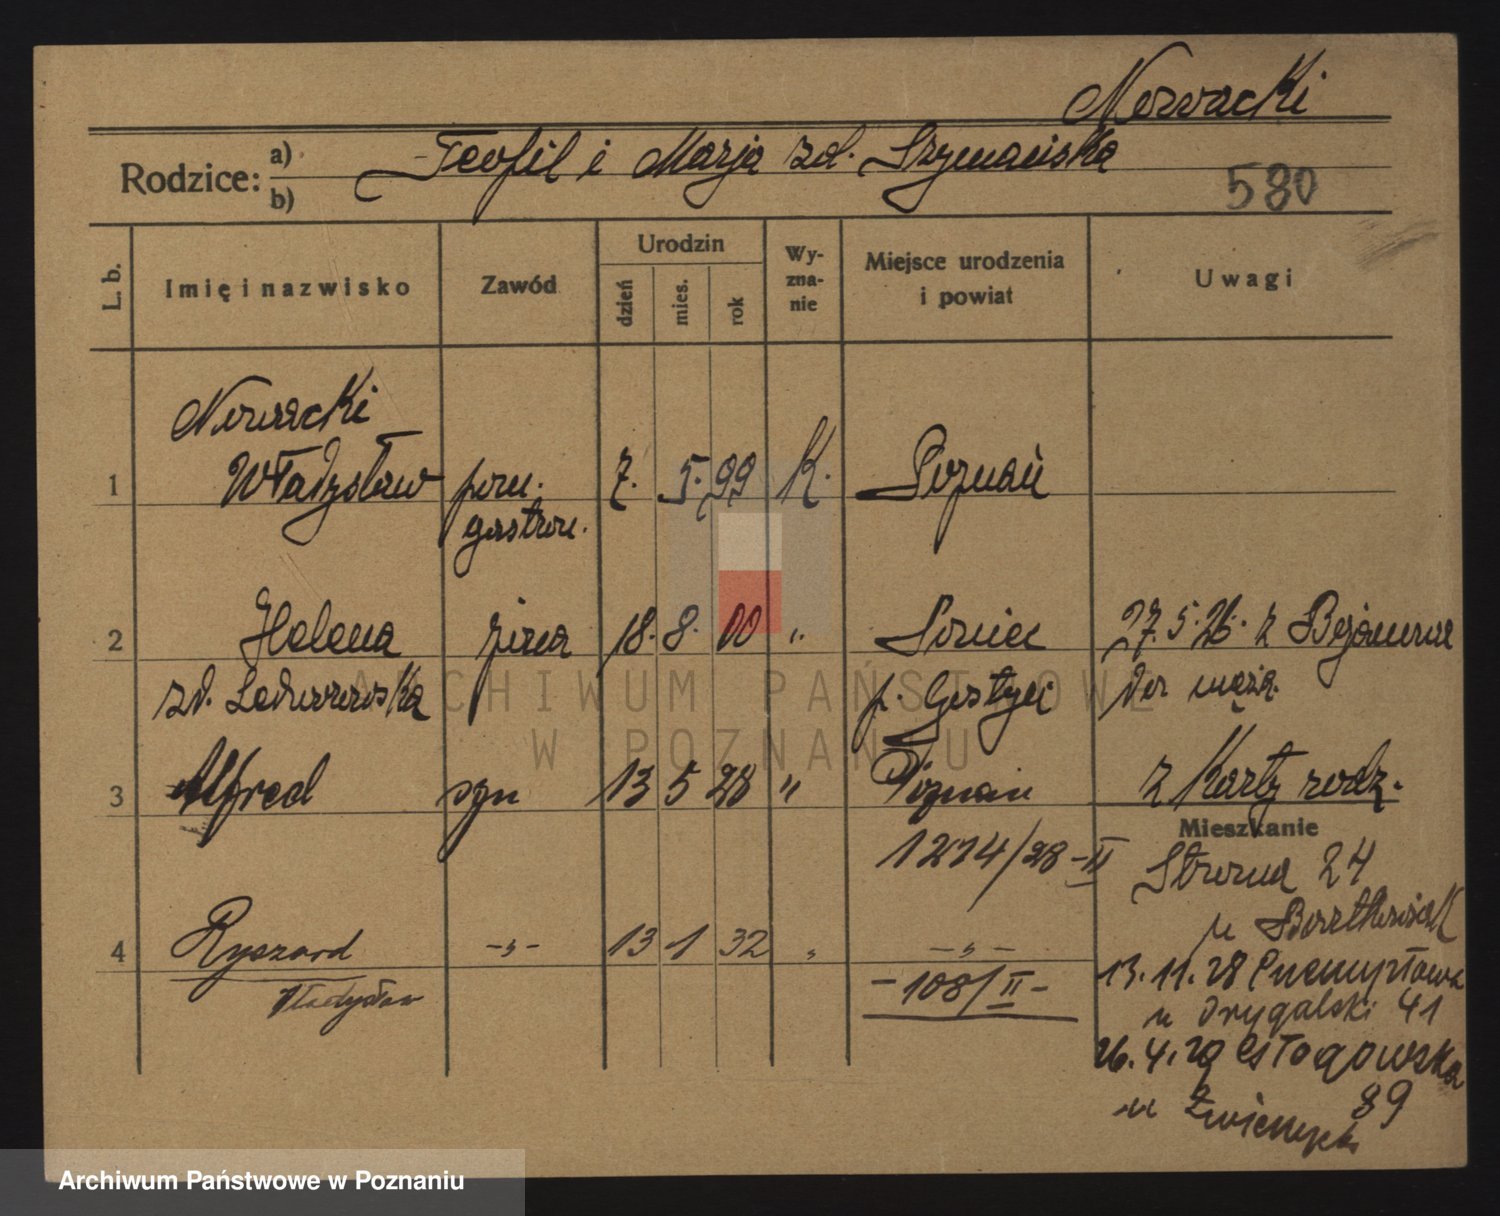 Nowacki
Rodzice: a) Teofil i Marja zd. Szymańska
b)
580
L. b.
Imię i nazwisko
Zawód
Urodzin
dzień
mies.
rok
Wy-
zna-
nie
Miejsce urodzenia
i powiat
Uwagi
Nowacki
1 Władysław pom. 7. 5. 99 K. Poznań
gastron.
2 Helena żona 18. 8. 00 " 27.5.26. z
zd. p. Gostyń do męża.
3 Alfred syn 13 5 28 " Poznań z Karty rodz.
1274/28-II
Mieszkanie
24
u
4 Ryszard -„- 13 1 32 „ -„-
Władysław
-108/II-
13.11.28 Przemysłowa
u Drygalski 41
26.4.29 Głogowska
89
u
ARCHIWUM PAŃSTWOWE
W POZNANIU
Archiwum Państwowe w Poznaniu